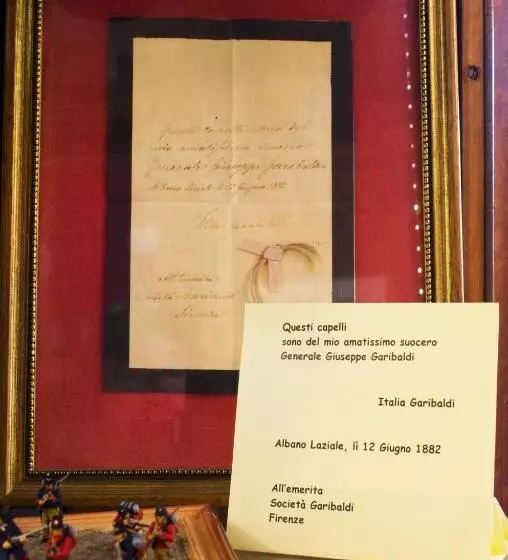 Questi capelli sono del
mio amatissimo suocero
Generale Giuseppe Garibaldi
Albano Laziale li 12 Giugno 1882
All'emerita
Società Garibaldi
Firenze
Questi capelli
sono del mio amatissimo suocero
Generale Giuseppe Garibaldi
Italia Garibaldi
Albano Laziale, lì 12 Giugno 1882
All'emerita
Società Garibaldi
Firenze